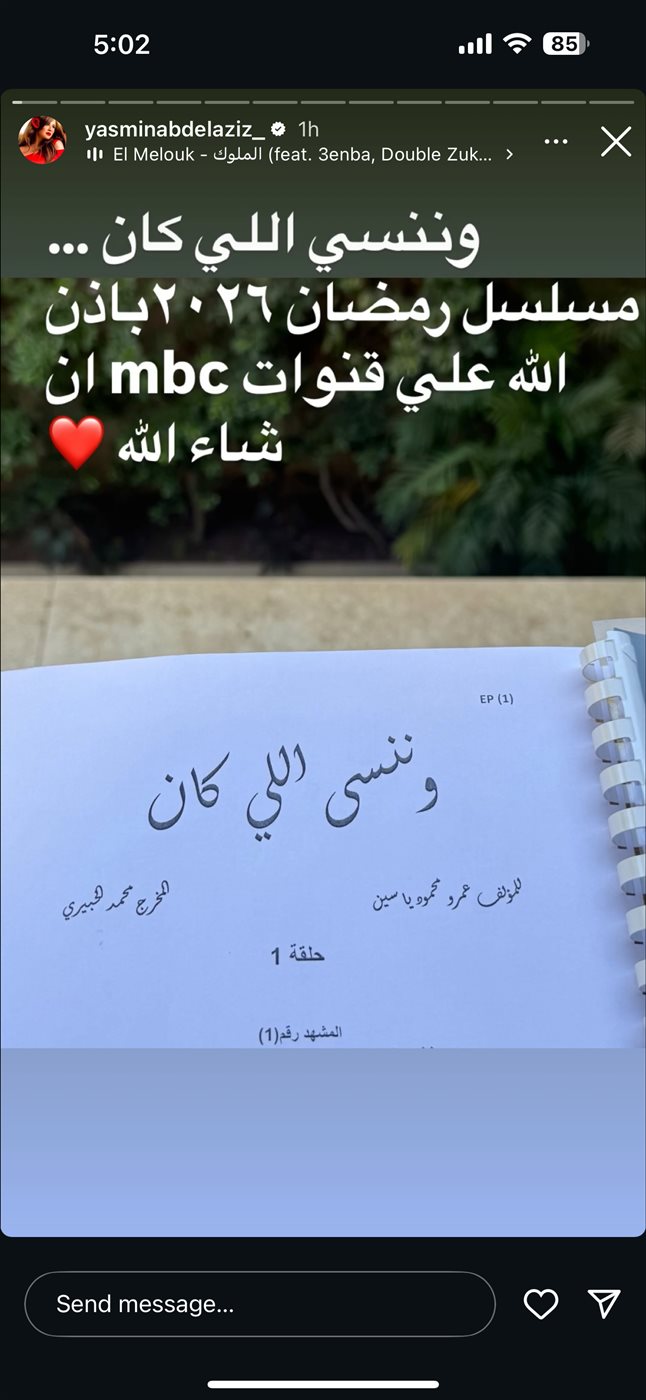 5:02
85
yasminabdelaziz_ 1h
El Melouk - الملوك (feat. 3enba, Double Zuk...
وننسي اللي كان ...
مسلسل رمضان ٢٠٢٦باذن
الله علي قنوات mbc ان
شاء الله ❤️
EP (1)
وننسى اللي كان
للمؤلف عمرو محمود ياسين
المخرج محمد الخبيري
حلقة 1
المشهد رقم(1)
Send message...